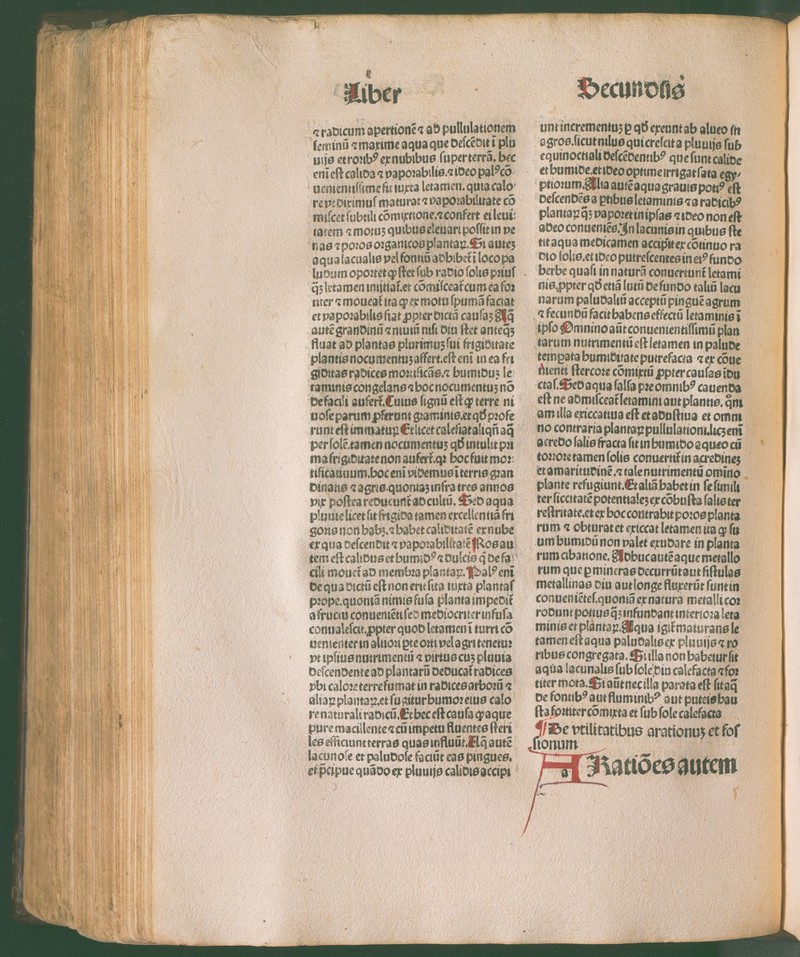 Liber
Secundus
⁊ radicum apertionē ⁊ ad pullulationem
seminū ⁊ maxime aqua que descēdit ī plu
uijs et rorib⁹ ex nubibus super terrā. hec
eni est calida ⁊ vaporabilis. ⁊ ideo pal⁹ cō
uenientissime fit iuxta letamen. quia calo
re vt diximus maturat ⁊ vaporabilitate cō
miscet subtili cōmixtione. ⁊ confert ei leui
tatem ⁊ motuȝ quibus eleuari possit in ve
nas ⁊ poros organicos plantaꝝ. Si auteȝ
aqua lacualis vel fontiū adhibet̄ ī loco pa
ludum oportet ꝙ stet sub radio solis prius
q̄ȝ letamen inijtiat̄. et cōmisceat̄ cum ea for
titer ⁊ moueat̄ ita ꝙ ex motu spumā faciat
et vaporabilis fiat ꝓpter dictā causaȝ Aq̄
autē grandinū ⁊ niuiū nisi diu stet anteq̄ȝ
fluat ad plantas plurimuȝ sui frigiditate
plantis nocumentuȝ affert. est eni in ea fri
giditas radices mortificās. ⁊ humiduȝ le
taminis congelans ⁊ hoc nocumentuȝ nō
de facili aufert̄. Cuius signū est ꝙ terre ni
uose parum ꝓferunt graminis. et qd̄ profe
runt est immatuꝝ Et licet calefiat aliqn̄ aq̄
per solē. tamen nocumentuȝ qd̄ intulit pri
ma frigiditate non aufert̄. qꝛ hoc fuit mor
tificatiuum. hoc eni videmus ī terris gran
dinatis ⁊ agris. quoniaȝ infra tres annos
vix postea reducunt̄ ad cultū. Sed aqua
pluuie licet sit frigida tamen excellentiā fri
goris non habȝ. ⁊ habet caliditatē ex nube
ex qua descendit ⁊ vaporabilitatē Ros au
tem est calidus et humid⁹ ⁊ dulcis q̄ de fa
cili mouet̄ ad membra plantaꝝ. Pal⁹ eni
de qua dictū est non erit sita iuxta plantas
prope. quoniā nimis fusa planta impedit̄
a fructu conueniēti sed mediocriter infusa
conualescit. ꝓpter quod letamen ī turri cō
uenienter in altiori ꝑte orti vel agri tenetur
vt ipsius nutrimentū ⁊ virtus cuȝ pluuia
descendente ad plantarū deducat̄ radices
vbi calore terre fumat in radices arborū ⁊
aliaꝝ plantaꝝ. et sugitur humor eius calo
re naturali radicū. Et hec est causa ꝙ aque
pure macillente ⁊ cū impetu fluentes steri
les efficiunt terras quas influūt. Aq̄ autē
lacunose et paludose faciūt eas pingues.
et p̄cipue quādo ex pluuijs calidis accipi
unt incrementuȝ ꝑ qd̄ exeunt ab alueo in
agros. sicut nilus qui crescit a pluuijs sub
equinoctiali descēdentib⁹ que sunt calide
et humide. et ideo optime irrigat sata egy⸗
ptiorum. Alia autē aqua grauis poti⁹ est
descendēs a ꝑtibus letaminis ⁊ a radicib⁹
plantaꝝ q̄ȝ vaporet in ipsas ⁊ ideo non est
adeo conueniēs. In lacunis in quibus ste
tit aqua medicamen accipit̄ ex cōtinuo ra
dio solis. et ideo putrescentes in ei⁹ fundo
herbe quasi in naturā conuertunt̄ letami
nis. ꝓpter qd̄ etiā lutū de fundo taliū lacu
narum paludaliū acceptū pinguē agrum
⁊ fecundū facit habens effectū letaminis ī
ipso Omnino aūt conuenientissimū plan
tarum nutrimentū est letamen in palude
temꝑata humiditate putrefacta ⁊ ex cōue
nienti stercore cōmixtū ꝓpter causas īdu
ctas. Sed aqua salsa pre omnib⁹ cauenda
est ne admisceat̄ letamini aut plantis. qm̄
am illa exiccatiua est et adustiua et omni
no contraria plantaꝝ pullulationi. licȝ eni
acredo salis fracta sit in humido aqueo cū
torrore tamen solis conuertit̄ in acredineȝ
et amaritudinē. ⁊ tale nutrimentū omīno
plante refugiunt. Et aliā habet in se simili
ter siccitatē potentialeȝ ex cōbusta salis ter
restritate. et ex hoc contrahit poros planta
rum ⁊ obturat et exiccat letamen ita ꝙ su
um humidū non valet exudare in planta
rum cibatione. Adhuc autē aque metallo
rum que ꝑ mineras decurrūt aut fistulas
metallinas diu aut longe fluxerūt sunt in
conueniētes. quoniā ex natura metalli cor
rodunt potius q̄ȝ infundant interiora leta
minis et plantaꝝ. Aqua igit̄ maturans le
tamen est aqua paludalis ex pluuijs ⁊ ro
ribus congregata. Si illa non habetur sit
aqua lacunalis sub sole diu calefacta ⁊ for
titer mota. Si aūt nec illa parata est sit aq̄
de fontib⁹ aut fluminib⁹ aut puteis hau
sta fortiter cōmixta et sub sole calefacta
¶ De vtilitatibus arationuȝ et fos
sionum
A Ratiōes autem